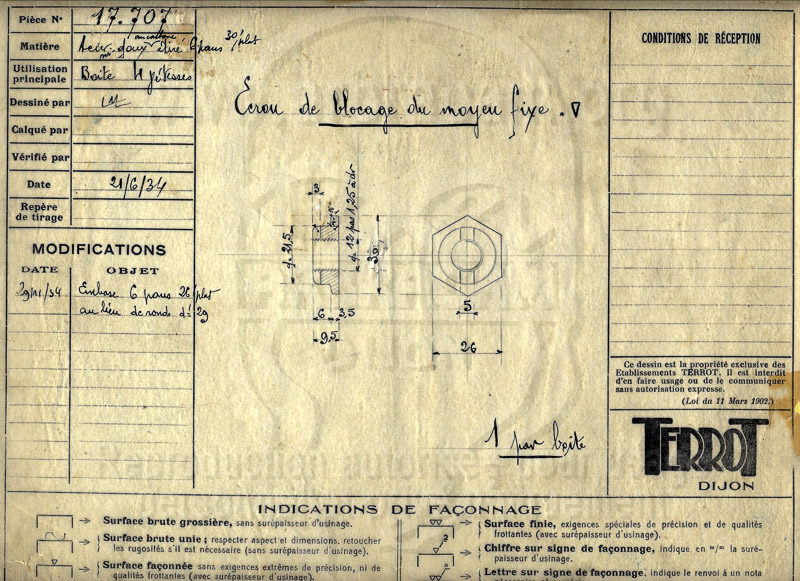 Pièce N° 17.707
Matière Acier doux étiré 6 pans 30/plat
Utilisation
principale Boite 4 vitesses
Dessiné par
Calqué par
Vérifié par
Date 21/6/34
Repère
de tirage
MODIFICATIONS
DATE OBJET
Embase 6 pans 26/plat
au lieu de ronde d= 29
Ecrou de blocage du moyeu fixe. ∇
3
d. 21,5
d. 12 pas 1,25 à dr
30
6 3,5
9,5
5
26
1 par boite
CONDITIONS DE RÉCEPTION
Ce dessin est la propriété exclusive des
Etablissements TERROT. Il est interdit
d'en faire usage ou de le communiquer
sans autorisation expresse.
(Loi du 11 Mars 1902.)
TERROT
DIJON
INDICATIONS DE FAÇONNAGE
Surface brute grossière, sans surépaisseur d'usinage.
Surface brute unie; respecter aspect et dimensions, retoucher
les rugosités s'il est nécessaire (sans surépaisseur d'usinage).
Surface façonnée sans exigences extrêmes de précision, ni de
qualités frottantes (avec surépaisseur d'usinage).
Surface finie, exigences spéciales de précision et de qualités
frottantes (avec surépaisseur d'usinage).
Chiffre sur signe de façonnage, indique en m/m la suré-
paisseur d'usinage.
Lettre sur signe de façonnage, indique le renvoi à un nota